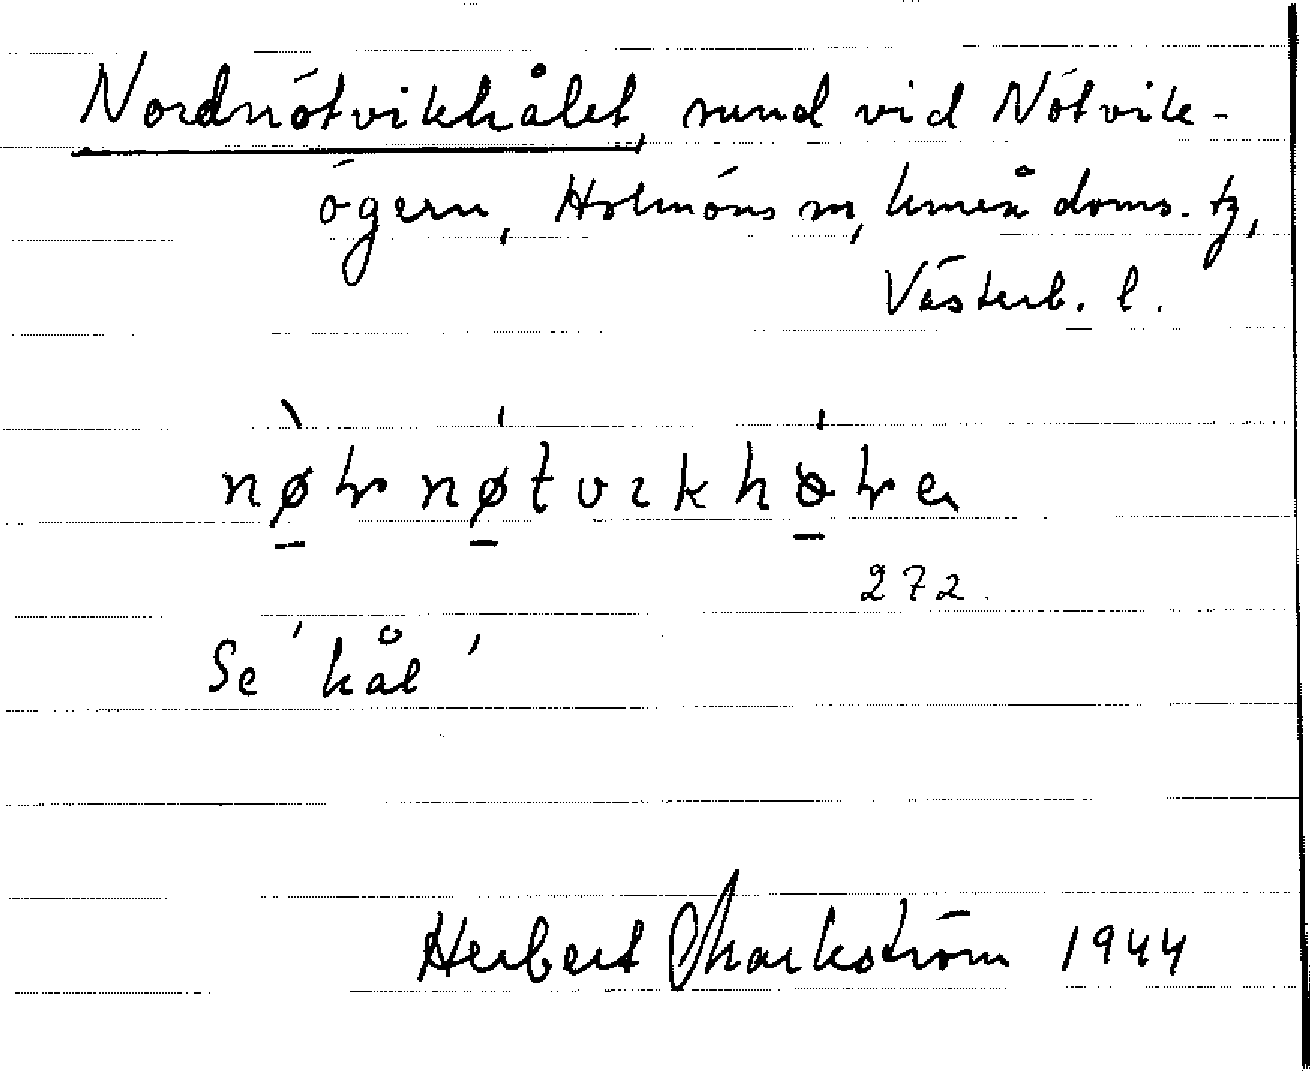 Nordnötvikhålet, sund vid Nötvik-
ögern, Holmöns sn, Umeå doms. tg,
Västerb. l.
272.
Se 'hål'
Herbert Markström 1944